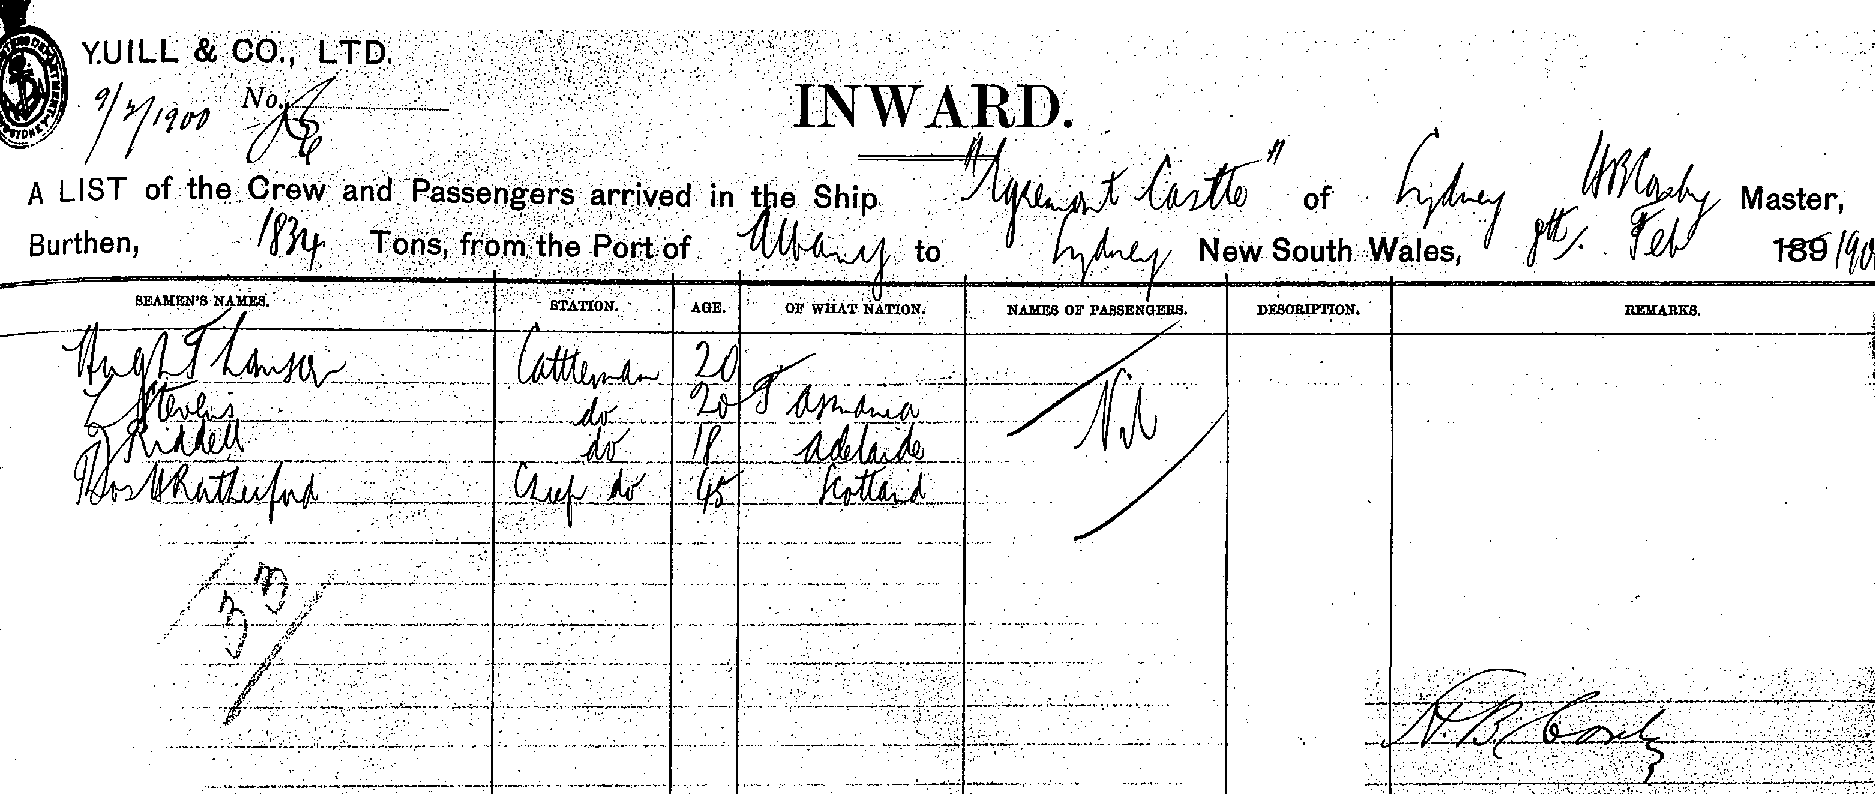 YUILL & CO., LTD.
9/2/1900 No.
INWARD.
A LIST of the Crew and Passengers arrived in the Ship "Agremont Castle" of Sydney Master,
Burthen, 1834 Tons, from the Port of Albany to Sydney New South Wales, 8th. Feb 189 190
SEAMEN'S NAMES. STATION. AGE. OF WHAT NATION. NAMES OF PASSENGERS. DESCRIPTION. REMARKS.
Hugh Cattleman 20
Stevens do 20 Tasmania Nil
J Riddell do 18 Adelaide
Thos H Rutherford Chief do 45 Scotland
33
H. B.